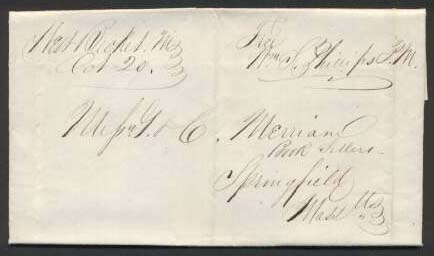 West Pocket, Ms
Oct 20.
Free
Wm S. Phillips P.M.
Messrs G. & C. Merriam
Book Sellers
Springfield
Masstts